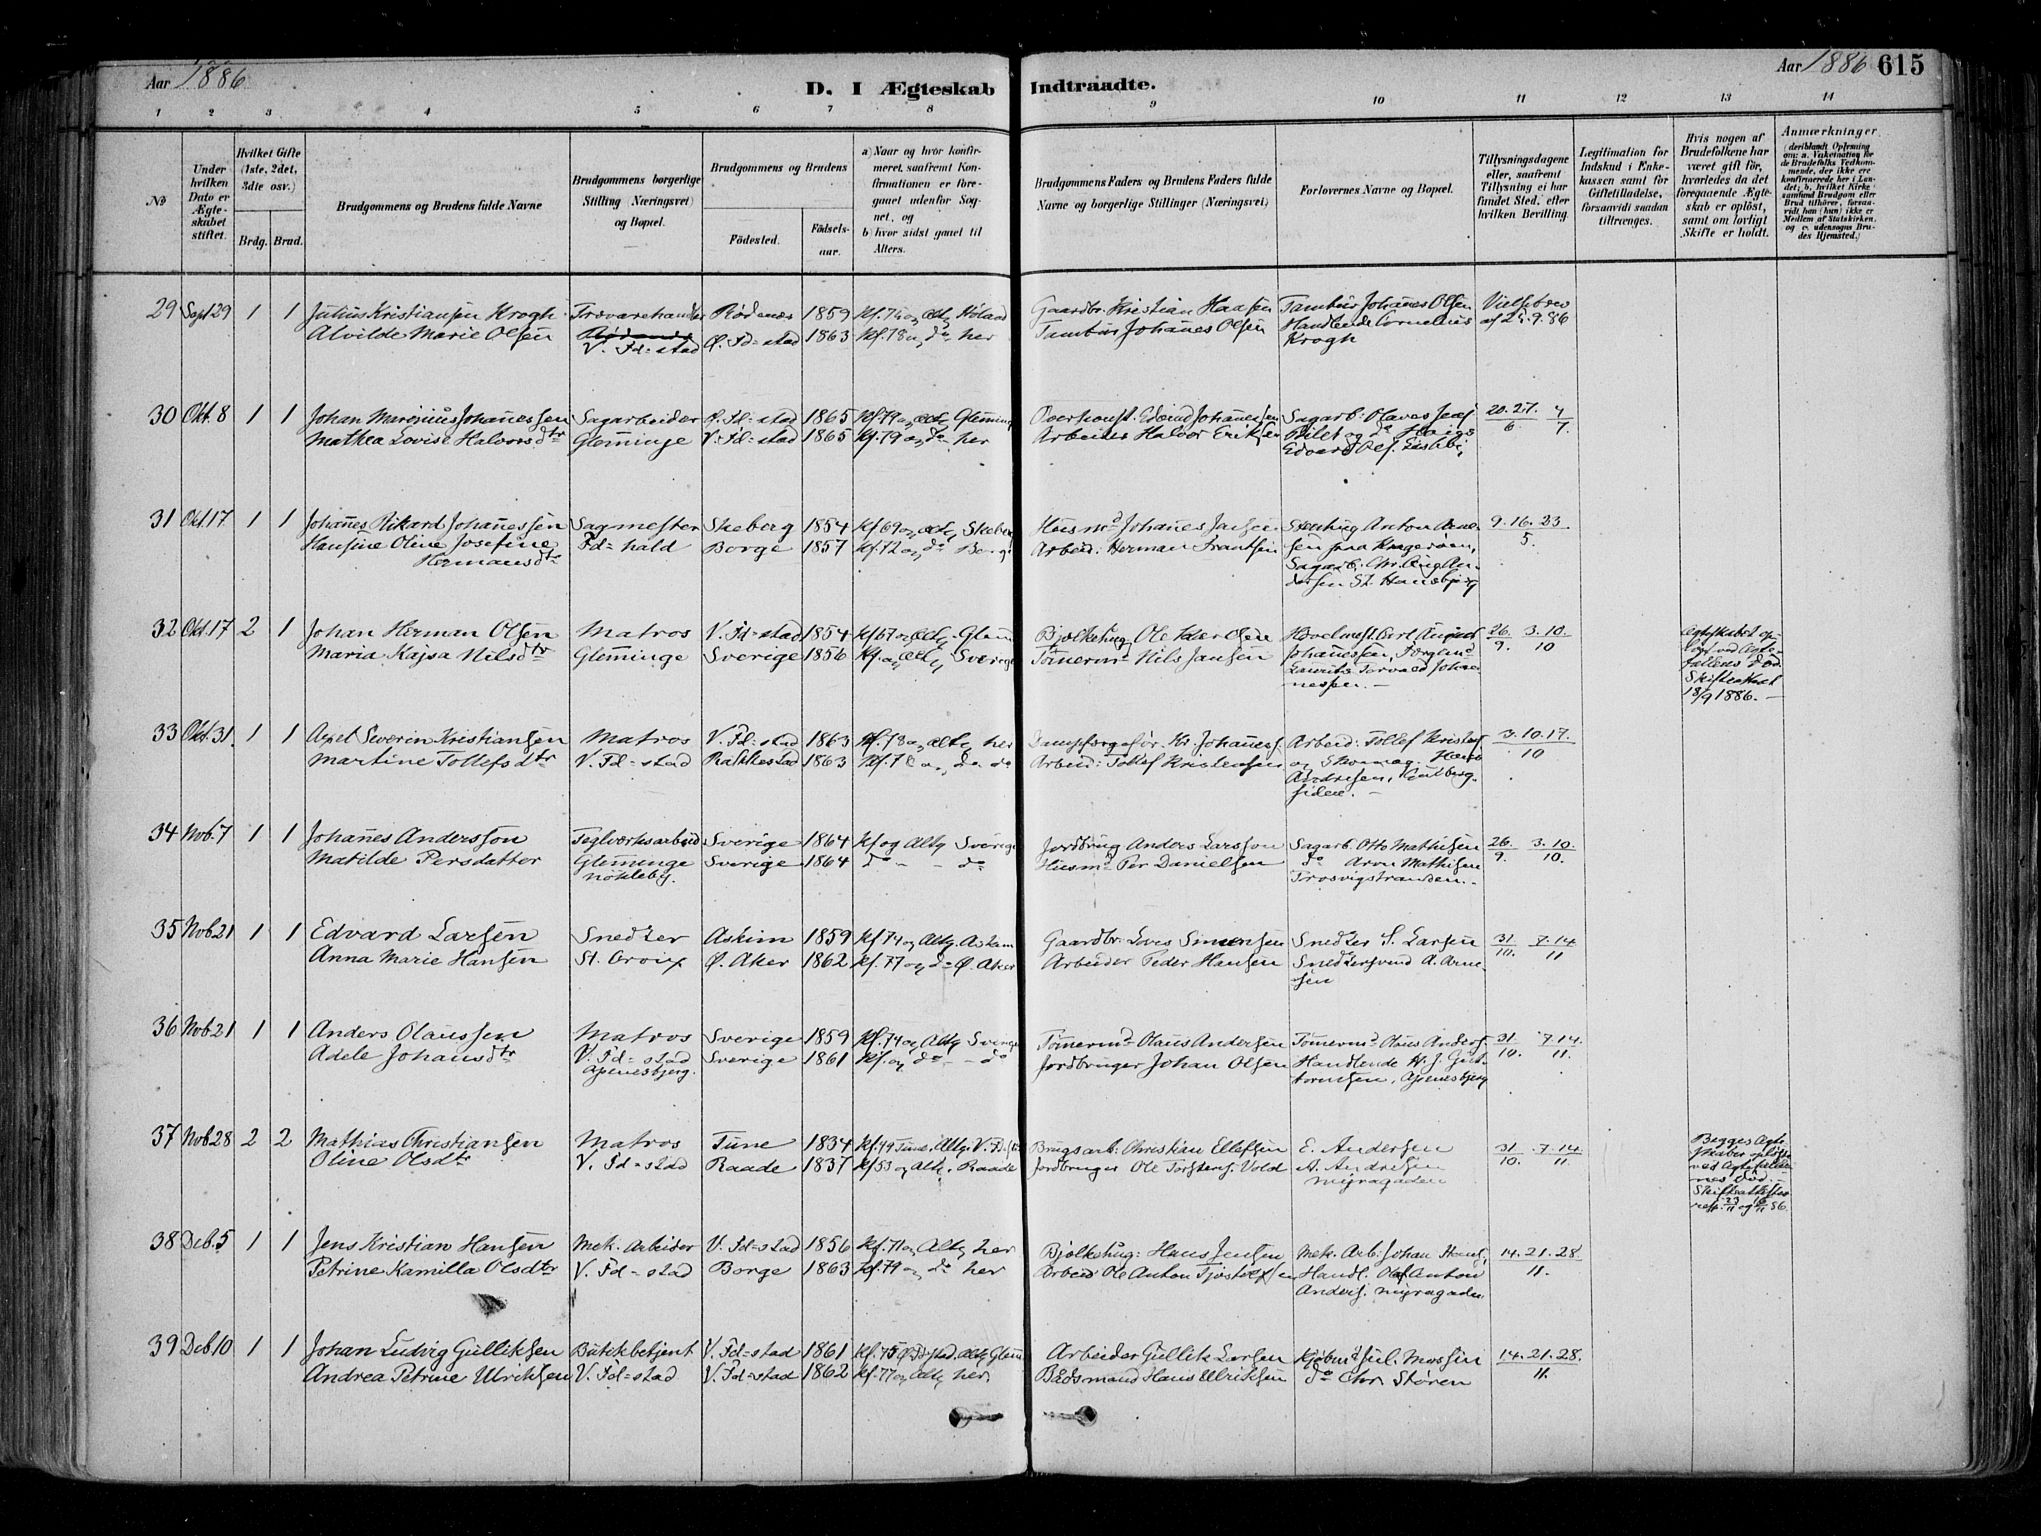 Aar 1886
D. I Ægteskab Indtraadte.
Aar 1886 615
1 2 3 4 5 6 7 8 9 10 11 12 13 14
No
Under hvilken Dato er Ægteskabet stiftet.
Hvilket Gifte (1ste, 2det, 3die osv.)
Brdg. Brud.
Brudgommens og Brudens fulde Navne
Brudgommens borgerlige Stilling (Næringsvei) og Bopæl.
Brudgommens og Brudens
Fødested. Fødselsaar.
a) Naar og hvor konfirmeret, saafremt Konfirmationen er foregaaet udenfor Sognet, og
b) hvor sidst gaaet til Alters.
Brudgommens Faders og Brudens Faders fulde Navne og borgerlige Stillinger (Næringsvei)
Forlovernes Navne og Bopæl.
Tillysningsdagene eller, saafremt Tillysning ei har fundet Sted, efter hvilken Bevilling.
Legitimation for Indskud i Enkekassen samt for Giftetilladelse, forsaavidt saadan tiltrænges.
Hvis nogen af Brudefolkene har været gift før, hvorledes da det foregaaende Ægteskab er opløst, samt om lovligt Skifte er holdt.
Anmærkninger
(deriblandt Oplysning om: a. Vakcination for de Brudefolks Vedkommende, der ikke ere konfirmerede her i Landet; b. hvilket Kirkesamfund Brudgom eller Brud tilhører, forsaavidt han (hun) ikke er Medlem af Statskirken, og c. udensogns Brudes Hjemsted.)
29 Sept 29 1 1 Julius Kristiansen Krogh Trævarehandler Rødenæs 1859 Kf. 74 og Altg Høland Gaardbr. Kristian Haasen Tambur Johanes Olsen
Alvilde Marie Olsen V. Fd=stad Ø. Fd=stad 1863 Kf. 78 og do her Tambur Johanes Olsen Handlende Cornelius Krogh
30 Okt. 8 1 1 Johan Marinius Johanessen Sagarbeider Ø. Fd=stad 1865 Kf. 79 og Altg Glemminge 20. 27. 4
Mathea Lovise Halvorsdtr Glemminge V. Fd=stad 1865 Kf. 79 og do her Arbeider Halvor Eriksen 6 7.
31 Okt. 17 1 1 Johanes Rikard Johanessen Sagmester Skeberg 1854 Kf 69 og Altg Skeberg Husmd Johanes Jansen 9. 16. 23
Hansine Oline Josefine Fd=hald Borge 1857 Kf. 72 og do Borge Arbeid: Herman Frantsen 5.
Hermansdtr
Sagarb. Chr. Aug. Andersen St. Hansbjerg
32 Okt. 17 2 1 Johan Herman Olsen Matros V. Fd=stad 1854 Kf 67 og Altg Glemm 26. 3. 10
Maria Kajsa Nilsdtr Glemminge Sverige 1856 Kf. og Altg Sverige Tømermd Nils Jansen 9. 10
Ægteskabet opløst ved Ægtefællens Død. Skifteattest 18/9 1886.
33 Okt. 31. 1 1 Axel Severin Kristiansen Matros V. Fd=stad 1863 Kf. 78 og Altg her Arbeid: Tollef Kristens 3. 10. 17.
Martine Tollefsdtr V. Fd=stad Rakkestad 1863 Kf. 78 og do do Arbeid: Tollef Kristensen og Skomag. 10
34 Nob. 7 1 1 Johanes Andersson Teglværksarbeid Sverige 1864 Kf og Altg Sverige Jordbrug Anders Larsson Sagarb. Otto Mathisen 26. 3. 10.
Matilde Persdatter Glemminge Sverige 1864 do - - do Husmd Per Danielsen do Arvn Mathisen 9. 10.
Nokleby. Trosvigstranden.
35 Nob. 21 1 1 Edvard Larsen Snedker Askim 1859 Kf 74 og Altg Askim Gaardbr: Lars Simensen Snedker S. Larsen 31 7. 14
Anna Marie Hansen St. Croix Ø. Aker 1862 Kf. 77 og do Ø. Aker Arbeider Peder Hansen Snedkersvend A. Arnesen 10. 11
36 Nob. 21 1 1 Anders Olaussen Matros Sverige 1859 Kf. 74 og Altg Sverige Tømermd Olaus Andersen Tømermd Olaus Anders. 31 7. 14.
Adele Johansdtr V. Fd=stad Sverige 1861 Kf. og do - do Jordbruger Johan Olsen Handlende H. J. Guttormsen, Apenesbjerg 10. 11.
Apenesbjerg.
37 Nob. 28 2 2 Mathias Christiansen Matros Tune 1834 Kf. 49 Tune. Altg. V. Fd. Brugsarb: Christian Ellefsen E. Andersen 31 7. 14
Oline Olsdtr V. Fd=stad Raade 1837 Kf 53 og Altg. Raade Jordbruger Ole Torstens. Vold A. Andresen 10. 11.
Myragaden
Begges Ægteskaber opløste ved Ægtefællernes Død.
38 Deb. 5 1 1 Jens Kristian Hansen Mek. Arbeider V. Fd=stad 1856 Kf. 71 og Altg her Bjelkehug: Hans Jensen Mek. Arb: Johan Hans. 14. 21. 28.
Petrine Kamilla Olsdtr V. Fd=stad Borge 1863 Kf. 79 og do her Arbeid Ole Anton Tjostolfsen Handl. Olaf Anton Anders. Myragaden 11.
39 Deb. 10 1 1 Johan Ludvig Gulliksen Butikbetjent V. Fd=stad 1861 Kf. 75 Ø Fd=stad. Altg Glemm Arbeider Gullik Larsen Kjøbmd Jul. Mossin 14. 21. 28.
Andrea Petrine Ulriksen V. Fd=stad V. Fd=stad 1862 Kf. 77 og Altg her. Baadsmand Hans Ulriksen do Chr. Støren 11.